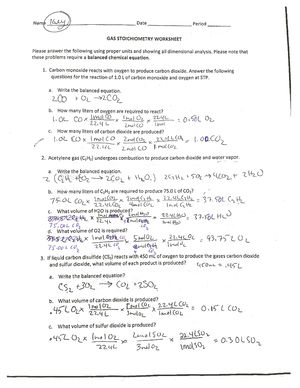 Name Key Date Period
GAS STOICHIOMETRY WORKSHEET
Please answer the following using proper units and showing all dimensional analysis. Please note that
these problems require a balanced chemical equation.
1. Carbon monoxide reacts with oxygen to produce carbon dioxide. Answer the following
questions for the reaction of 1.0 L of carbon monoxide and oxygen at STP.
a. Write the balanced equation.
2CO + O₂ → 2CO₂
b. How many liters of oxygen are required to react?
1.0L CO × 1mol CO / 22.4L × 1mol O₂ / 2mol CO × 22.4L / 1mol = 0.5L O₂
c. How many liters of carbon dioxide are produced?
1.0L CO × 1mol CO / 22.4L × 2mol CO₂ / 2mol CO × 22.4L CO₂ / 1mol CO₂ = 1.0L CO₂
2. Acetylene gas (C₂H₂) undergoes combustion to produce carbon dioxide and water vapor.
a. Write the balanced equation.
2C₂H₂ + 5O₂ → 4CO₂ + 2H₂O
b. How many liters of C₂H₂ are required to produce 75.0 L of CO₂?
75.0L CO₂ × 1mol CO₂ / 22.4L CO₂ × 2mol C₂H₂ / 4mol CO₂ × 22.4L C₂H₂ / 1mol C₂H₂ = 37.5L C₂H₂
c. What volume of H2O is produced?
75.0L CO₂
37.5L H₂O
d. What volume of O2 is required?
75.0L CO₂
5mol O₂ / 4mol CO₂ × 22.4L O₂ / 1mol O₂ = 93.75L O₂
3. If liquid carbon disulfide (CS₂) reacts with 450 mL of oxygen to produce the gases carbon dioxide
and sulfur dioxide, what volume of each product is produced? 450mL = .45L
a. Write the balanced equation?
CS₂ + 3O₂ → CO₂ + 2SO₂
b. What volume of carbon dioxide is produced?
.45L O₂ × 1mol O₂ / 22.4L O₂ × 1mol CO₂ / 3mol O₂ × 22.4L CO₂ / 1mol CO₂ = 0.15L CO₂
c. What volume of sulfur dioxide is produced?
.45L O₂ × 1mol O₂ / 22.4L × 2mol SO₂ / 3mol O₂ × 22.4L SO₂ / 1mol SO₂ = 0.30L SO₂